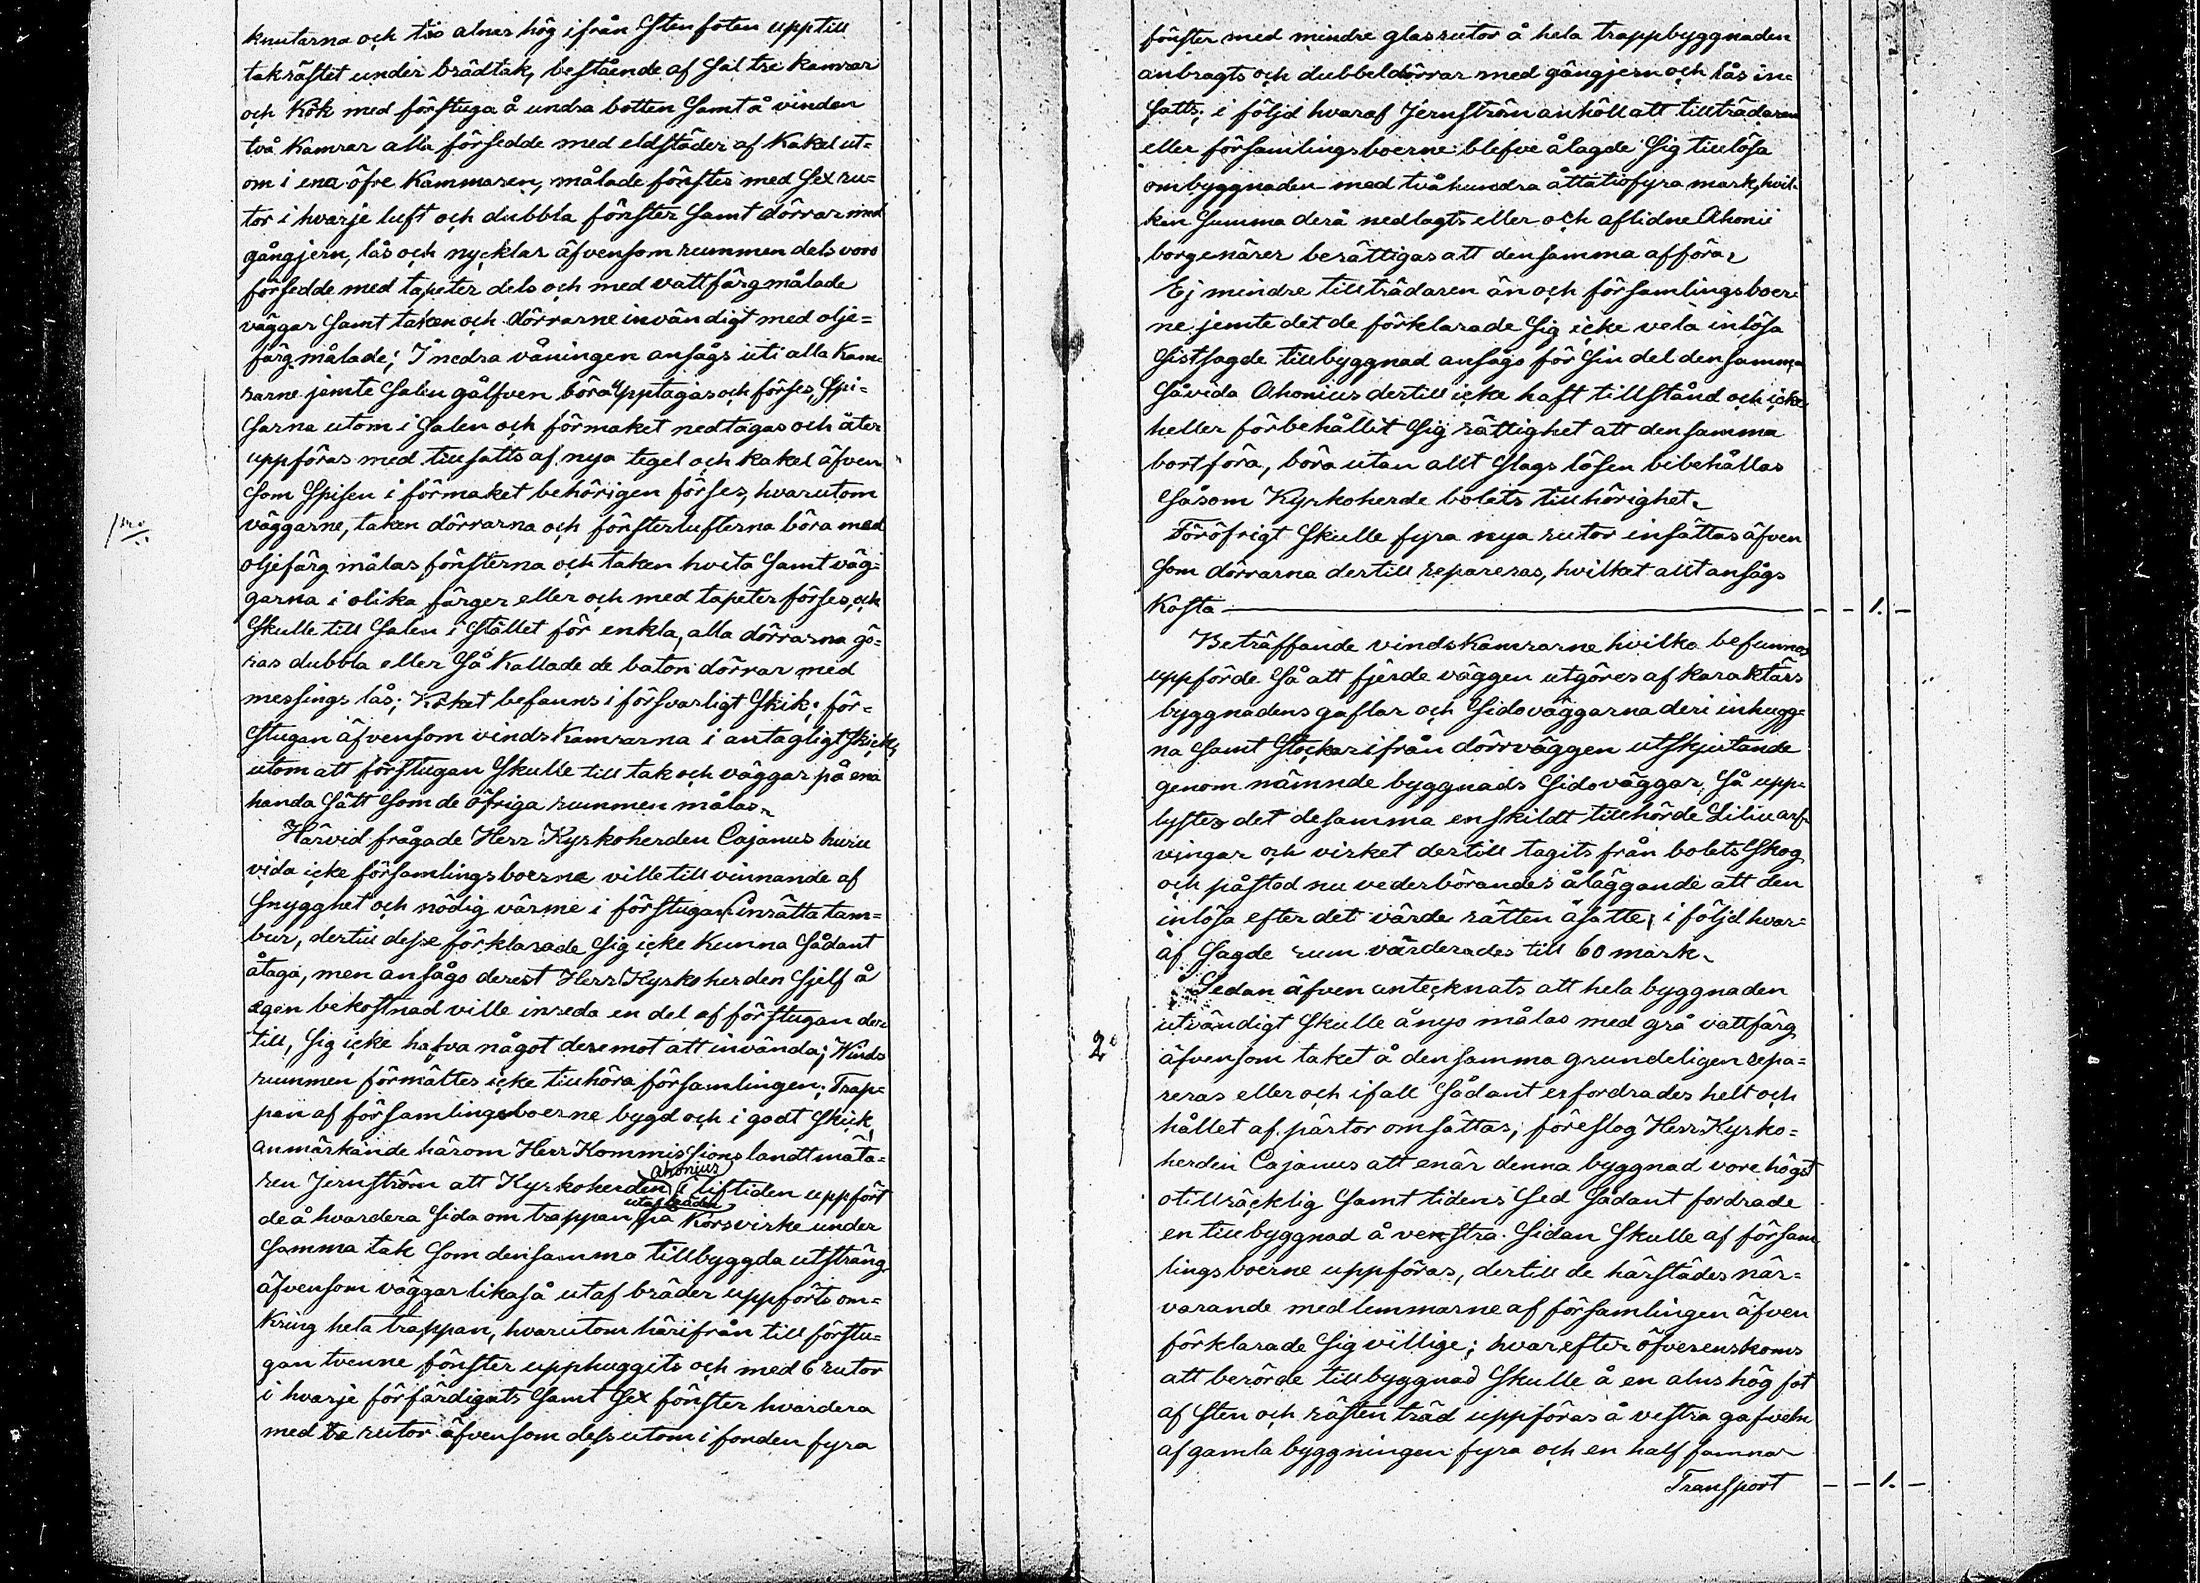 knutarna och tio alnar hög ifrån Stenfoten upp till
takräftet under brädtak, bestående af Sal tre kamrar
och Kök med förstuga å undra botten Samt å vinden
två Kamrar alla försedde med eldstäder af Kakel ut=
om i ena öfre Kammaren, målade fönster med Sex ru=
tor i hvarje luft och dubbla fönster Samt dörrar med
gångjern, lås och nycklar äfvensom rummen dels voro
försedde med tapeter dels och med vattfärg målade
väggar Samt taken och dörrarne invändigt med olje=
färg målade; I nedra våningen ansågs uti alla Kam=
rarne jemte Salen gålfven böra Upptagas och förses, Spi=
sarna utom i Salen och förmaket nedtagas och åter
uppföras med tillsatts af nya tegel och kakel äfven
som Spisen i förmaket behörigen förses, hvarutom
1mo
väggarne, taken dörrarna och fönsterlufterna böra med
oljefärg målas fönsterna och taken hvita Samt väg=
garna i olika färger eller och med tapeter förses, och
Skulle till Salen i Stället för enkla, alla dörrarna gö=
ras dubbla eller Så Kallade de baton dörrar med
messings lås; Köket befanns i försvarligt Skik; för=
stugan äfvensom vinds Kamrarna i antagligt Skick,
utom att förstugan Skulle till tak och väggar på ena
handa Sätt Som de öfriga rummen målas.
Härvid frågade Herr Kyrkoherden Cajanus huru
vida icke församlingsboerne ville till vinnande af
Snygghet och nödig värme i förstugan inrätta tam=
bur, dertill desse förklarade Sig icke Kunna Sådant
åtaga, men ansågo derest Herr Kyrkoherden Sjelf å
egen bekostnad ville inreda en del af förstugan der=
till, Sig icke hafva något deremot att invända; Winds
rummen förmältes icke tillhöra församlingen; Trap=
pan af församlingsboerne bygd och i godt Skick,
anmärkande härom Herr Kommissions landtmäta=
ren Jernström att Kyrkoherden Ahonius i liftiden uppfört
de å hvardera Sida om trappan utaf bräder på Korsvirke under
Samma tak Som densamma tillbyggda utsträng
äfvensom väggar likaså utaf bräder uppförts om=
Kring hela trappan, hvarutom härifrån till förstu=
gan tvenne fönster upphuggits och med 6 rutor
i hvarje förfärdigats Samt Sex fönster hvardera
med tre rutor äfvensom dessutom i fonden fyra
fönster med mindre glasrutor å hela trappbyggnaden
anbragts och dubbeldörrar med gångjern och lås in=
satts; i följd hvaraf Jernström anhöll att tillträdaren
eller församlingsboerne blefve ålagde Sig tillösa
ombyggnaden med tvåhundra åttatiofyra mark, hvil=
ken Summa derå nedlagts eller och aflidne Ahonii
borgenärer berättigas att densamma afföra.
Ej mindre tillträdaren än och församlingsboer=
ne jemte det de förklarade Sig icke vela inlösa
Sistsagde tillbyggnad ansågo för Sin del densamma
Såvida Ahonius dertill icke haft tillstånd och icke
heller förbehållit Sig rättighet att densamma
bortföra, böra utan allt Slags lösen bibehållas
Såsom Kyrkoherde bolets tillhörighet.
Föröfrigt Skulle fyra nya rutor insättas äfven
Som dörrarna dertill repareras, hvilket allt ansågs
Kosta - - 1. -
Beträffande vindskamrarne hvilka befunnos
uppförde Så att fjerde väggen utgöres af karaktärs
byggnadens gaflar och Sidoväggarna deri inhugg=
na Samt Stockar ifrån dörrväggen utskjutande
genom nämnde byggnads Sidoväggar, Så upp=
lystes det desamma enskildt tillhörde Lilii arf=
vingar och virket dertill tagits från bolets Skog
och påstod nu vederbörandes åläggande att den
inlösa efter det värde rätten åsatte; i följd hvar=
af Sagde rum värderades till 60 mark.
Sedan äfven antecknats att hela byggnaden
2o
utvändigt Skulle ånyo målas med grå vattfärg
äfvensom taket å densamma grundeligen repa=
reras eller och ifall Sådant erfordrades helt och
hållet af pärtor omsättas, föreslog Herr Kyrko=
herden Cajanus att enär denna byggnad vore högst
otillräcklig Samt tidens Sed Sådant fordrade
en tillbyggnad å venstra Sidan Skulle af försam
lingsboerne uppföras, dertill de härstädes när=
varande medlemmarne af församlingen äfven
förklarade Sig villige; hvarefter öfverenskoms
att berörde tillbyggnad Skulle å en alns hög fot
af Sten och rästen träd uppföras å vestra gafveln
af gamla byggningen fyra och en half famnar
Transport - - 1. -